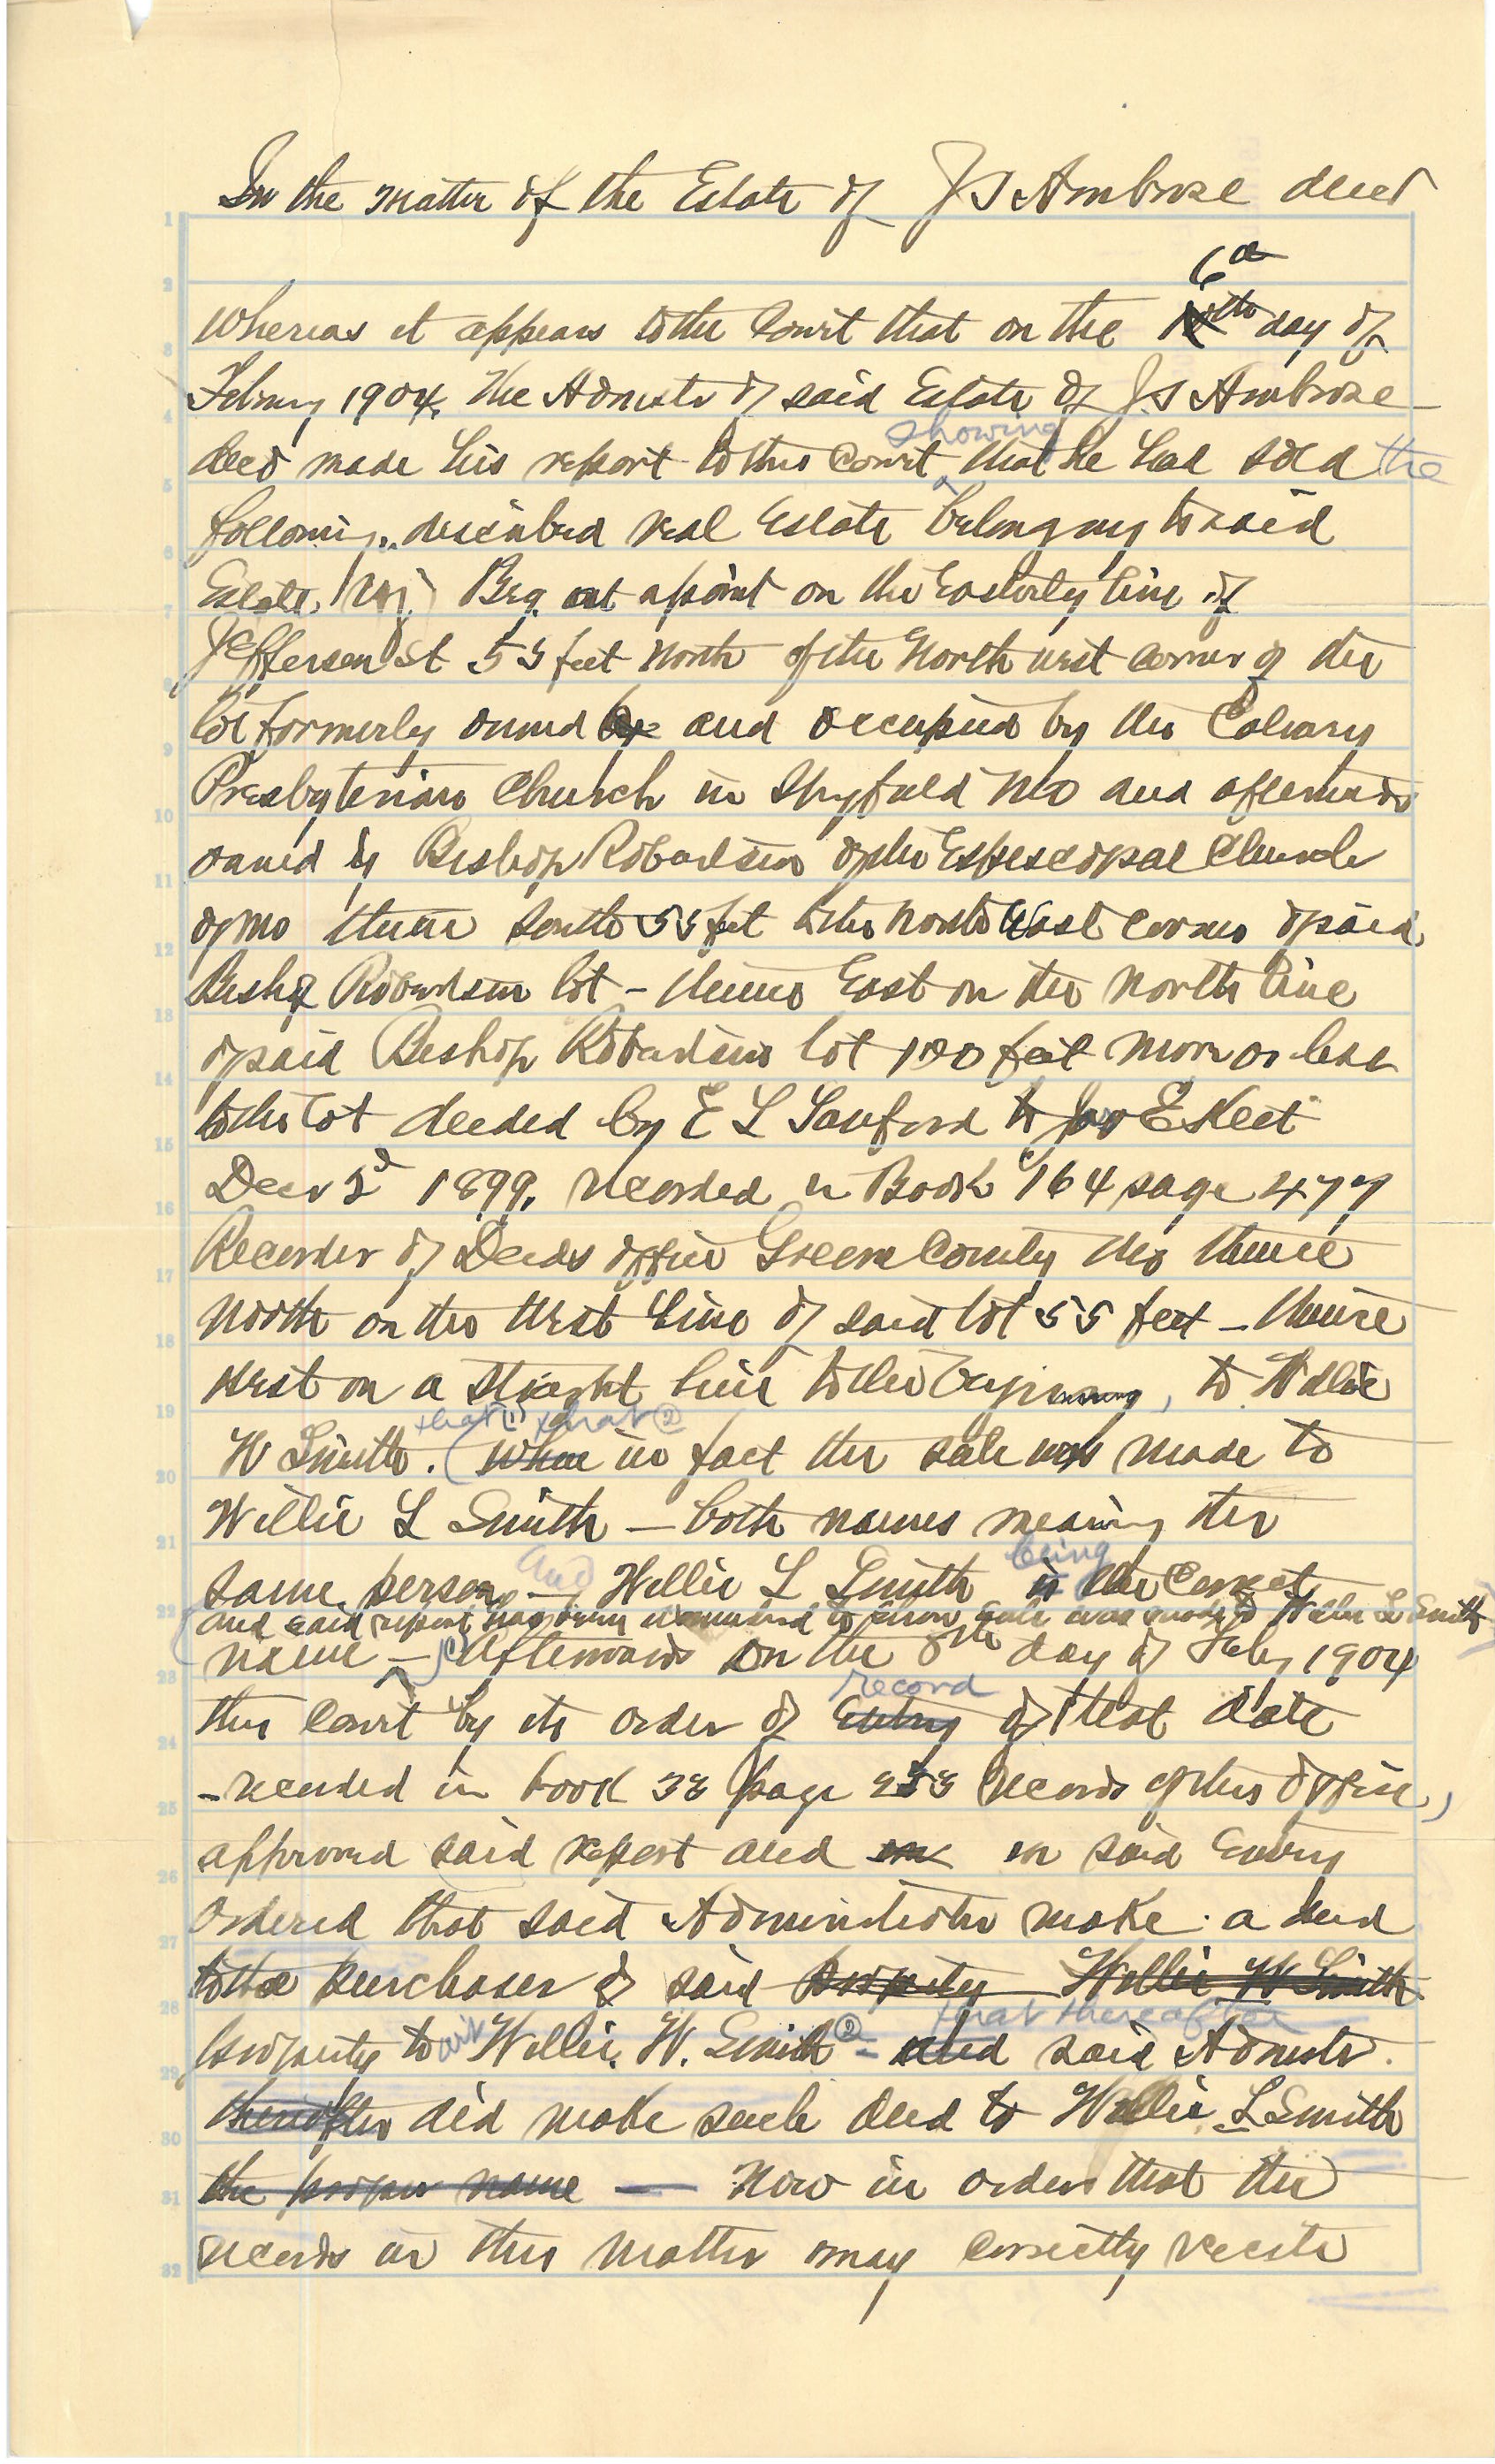 In the matter of the Estate of J S Ambrose decd
6th
Whereas it appears to the Court that on the day of
February 1904, the Admstr of said Estate of J. S Ambrose
showing
decd made his report to this Court that he had sold the
following described real Estate belonging to said
Estate, viz; Beg. at a point on the Easterly line of
Jefferson St 55 feet North of the North west corner of the
lot formerly owned by and occupied by the Calvary
Presbyterian Church in Spgfield Mo and afterwards
owned by Bishop Robertson of the Espescopal Church
of Mo thence South 55 feet to the North West corner of said
Bishop Robertson lot - thence East on the North line
of said Bishop Robertsons lot 120 feet more or less
to the lot deeded by E L Sanford to E Keet
Decr 2d 1899, recorded in Book 164 page 477
Recorder of Deeds office Greene County Mo thence
North on the West line of said lot 55 feet - thence
West on a straight line to the beginning, to Willie
that (1) that (2)
W Smith. (When in fact the sale was made to
Willie L Smith - both names meaning the
and being
same person - Willie L Smith is the correct
and said report having been to show sale was made to Willie L Smith
name - (1) Afterwards on the 8th day of Feby 1904
record
this Court by its order of Entry of that date
- recorded in book 38 page records of this office,
approved said report and on in said Entry
ordered that said Administrator make a deed
to the purchaser of said property Willie W Smith
that thereafter
property to wit Willie W. Smith (2) - and said Admstr.
thereafter did make such deed to Willie L Smith
the proper name - Now in order that the
records in this matter may correctly recite